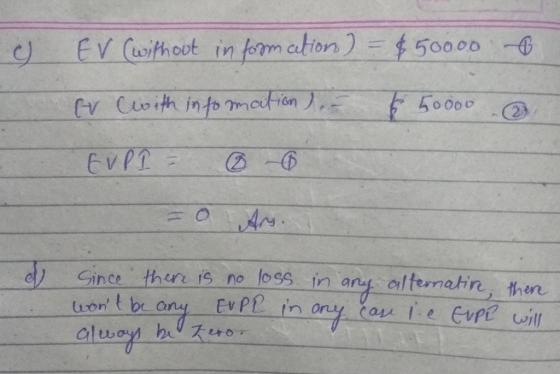 c) EV (without information) = $ 50000 -①
EV (with information). = $ 50000 -②
EVPI = ② -①
= 0 Ans.
d) Since there is no loss in any alternative, there
won't be any EVPI in any case i.e EVPI will
always be zero.